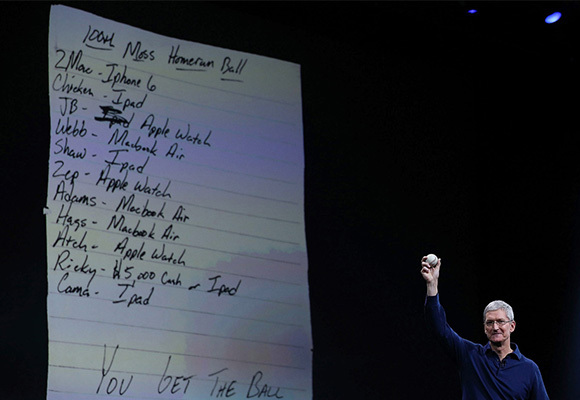 100th Moss Homerun Ball
2Mac - Iphone 6
Chicken - Ipad
JB - Ipad Apple Watch
Webb - Macbook Air
Shaw - Ipad
Zep - Apple Watch
Adams - Macbook Air
Hags - Macbook Air
Atch - Apple Watch
Ricky - $5,000 Cash or Ipad
Cama - Ipad
You Get The Ball